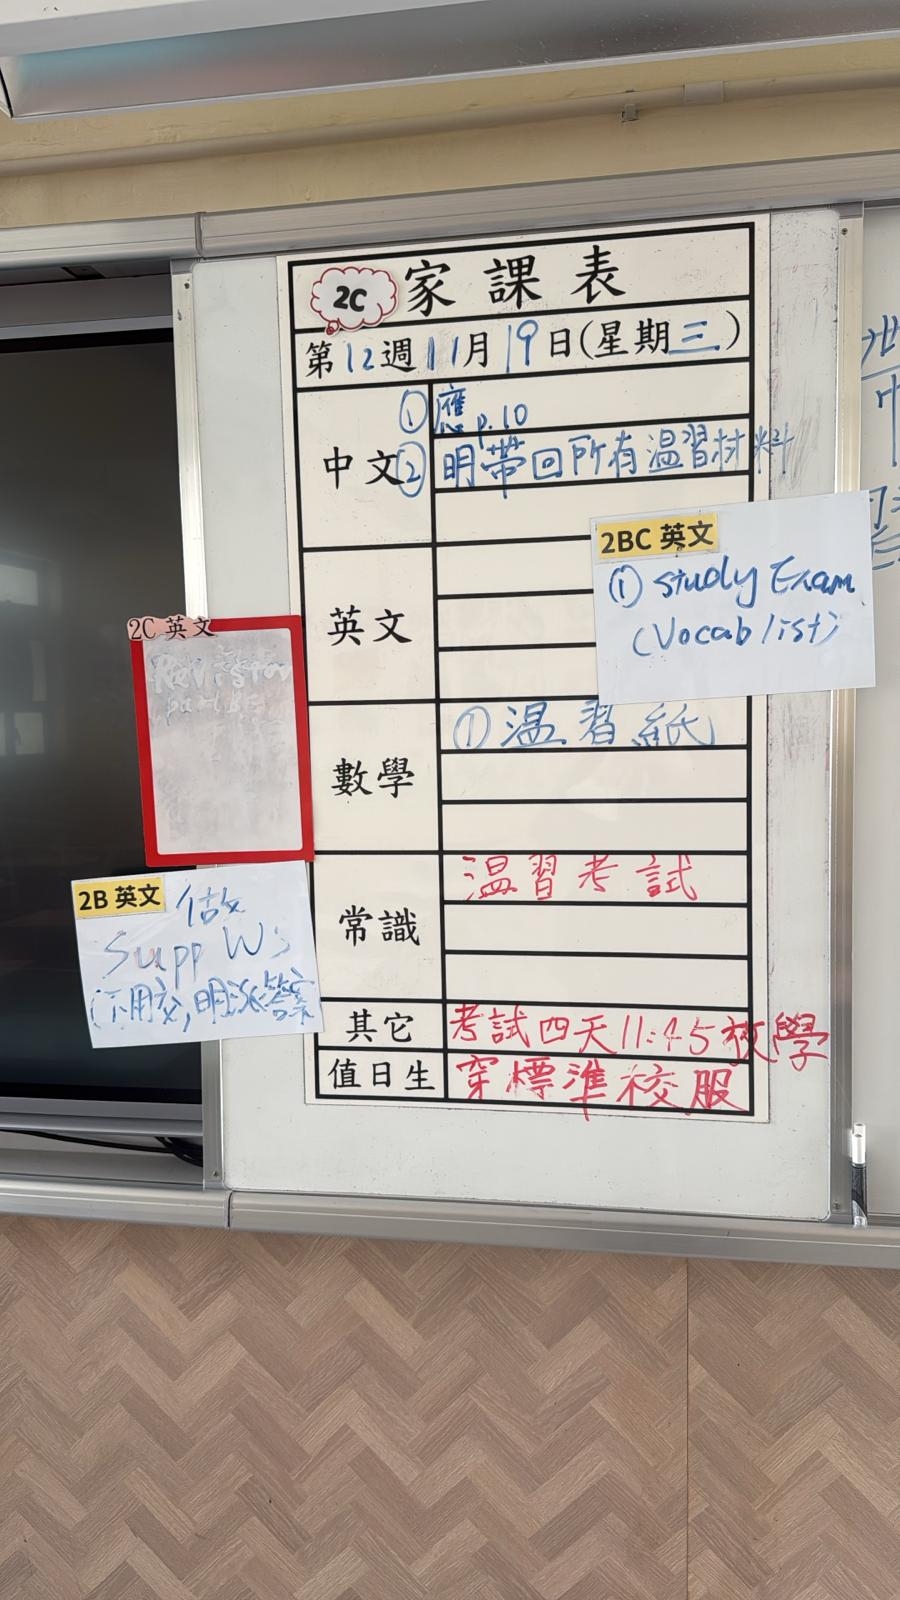 2C 家課表
第12週11月19日(星期三)
中文
① 應 p.10
② 明帶回所有溫習材料
英文
2BC 英文
① Study Exam
(Vocab list)
2C 英文
Revision
數學
① 溫習紙
常識
溫習考試
2B 英文
做
Supp Ws
(不用交,明派答案)
其它
考試四天11:45放學
值日生
穿標準校服